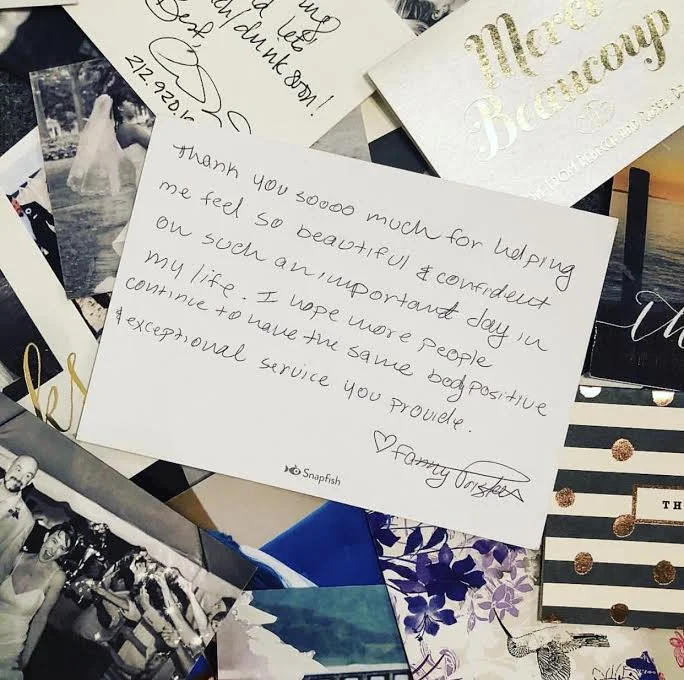 Best,
let's
drunk soon!
212.920.
Merci
Beaucoup
Thank you soooo much for helping
me feel so beautiful & confident
on such an important day in
my life. I hope more people
continue to have the same bodypositive
& exceptional service you provide.
♡ Fanny
Snapfish
TH